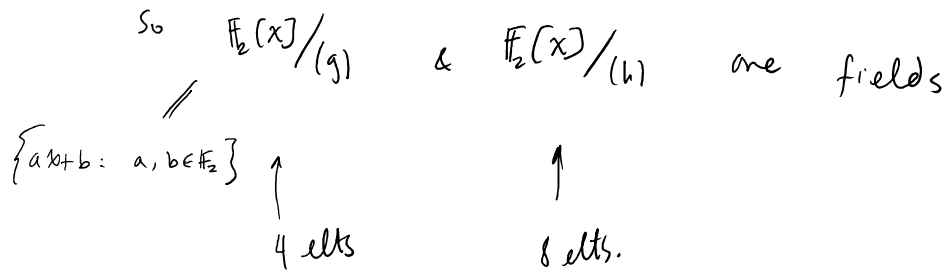 So 𝔽₂[x]/(g) & 𝔽₂[x]/(h) are fields
{ax+b : a, b ∈ 𝔽₂}
4 elts 8 elts.